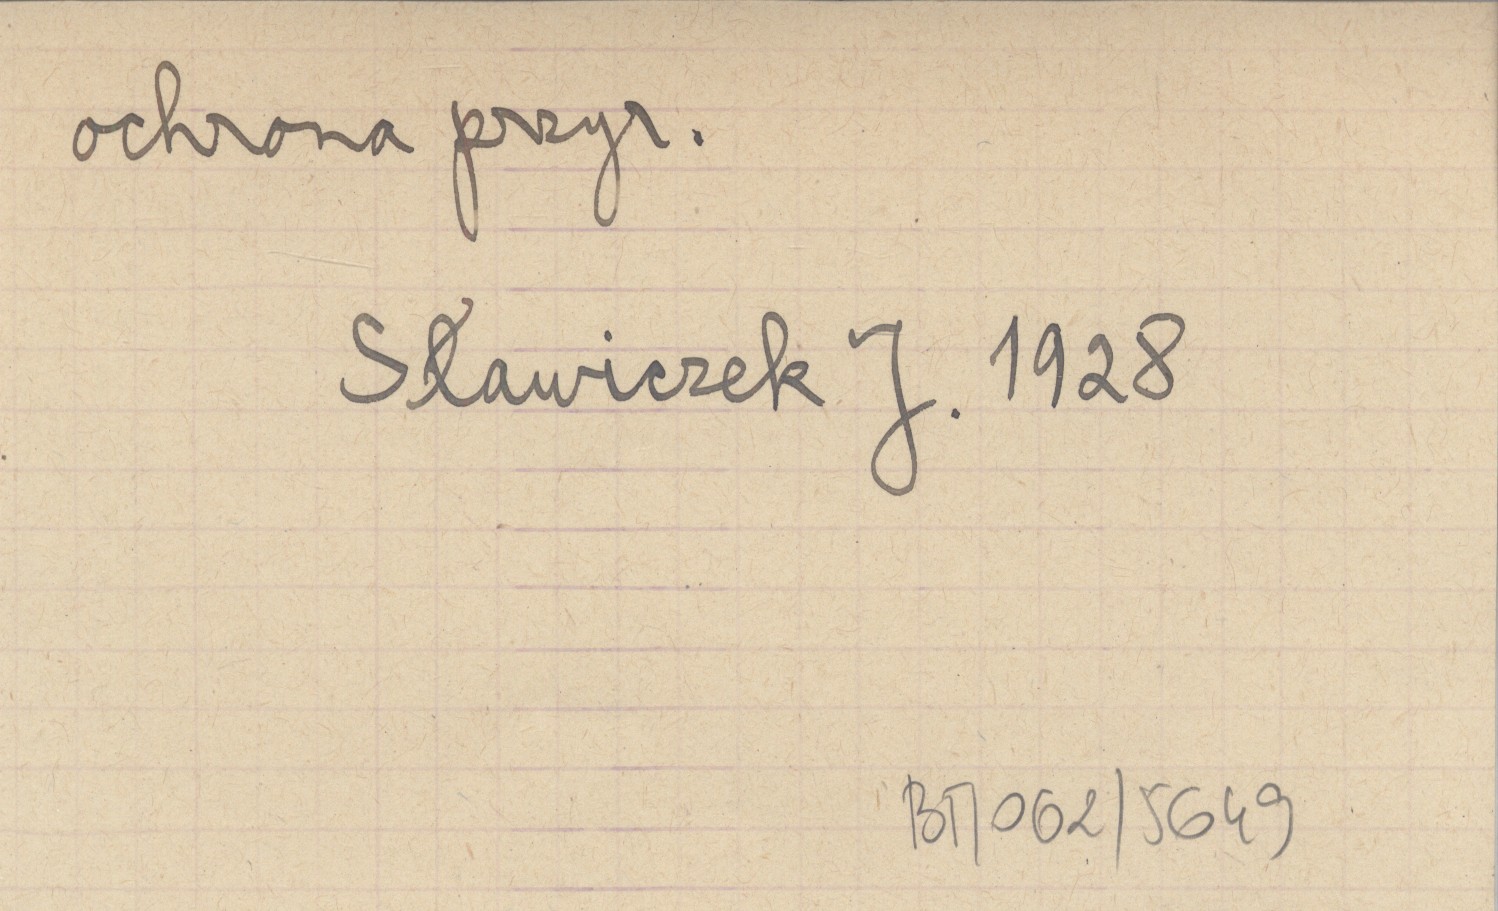 ochrona przyr.
Sławiczek J. 1928
BП 062/5649